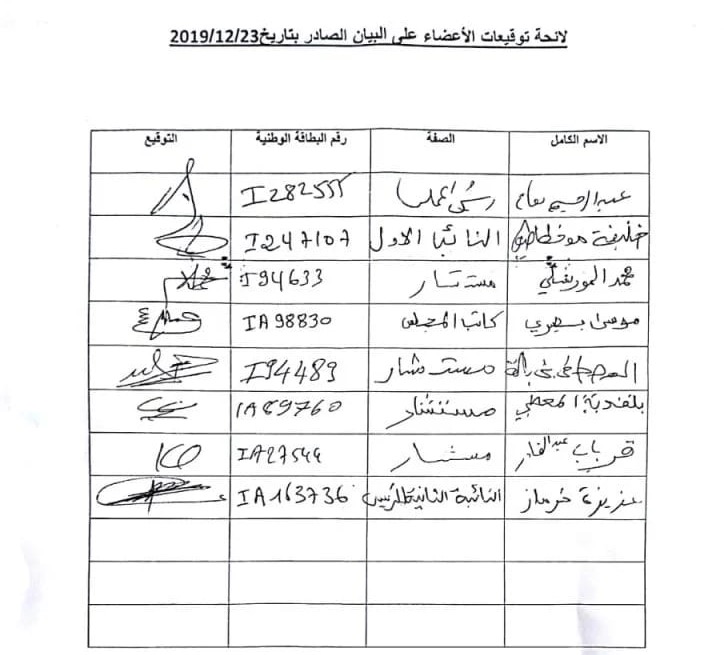 لائحة توقيعات الأعضاء على البيان الصادر بتاريخ2019/12/23
الاسم الكامل الصفة رقم البطاقة الوطنية التوقيع
عبد الرحيم I282555
خليفة النائب الاول I247107
محمد مستشار I94633
موسى بصيري كاتب المجلس IA98830
المصطفى مستشار I94489
بلفدية المعطي مستشار IA69760
قرباب عبد القادر مستشار IA27544
عزيزة خرماز النائبة الثانية للرئيس IA163736